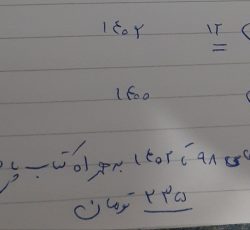 ۱۲ ۱۴۰۲
۱۴۰۰
۹۸ تا ۱۴۰۲ به همراه کتاب
۲۳۵ تومان